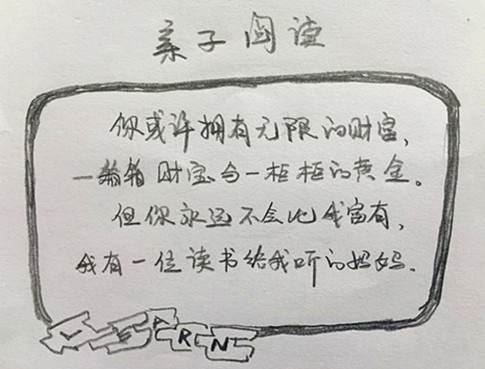 亲子阅读
你或许拥有无限的财富,
一箱箱财宝与一柜柜的黄金。
但你永远不会比我富有,
我有一位读书给我听的妈妈.
LEARN